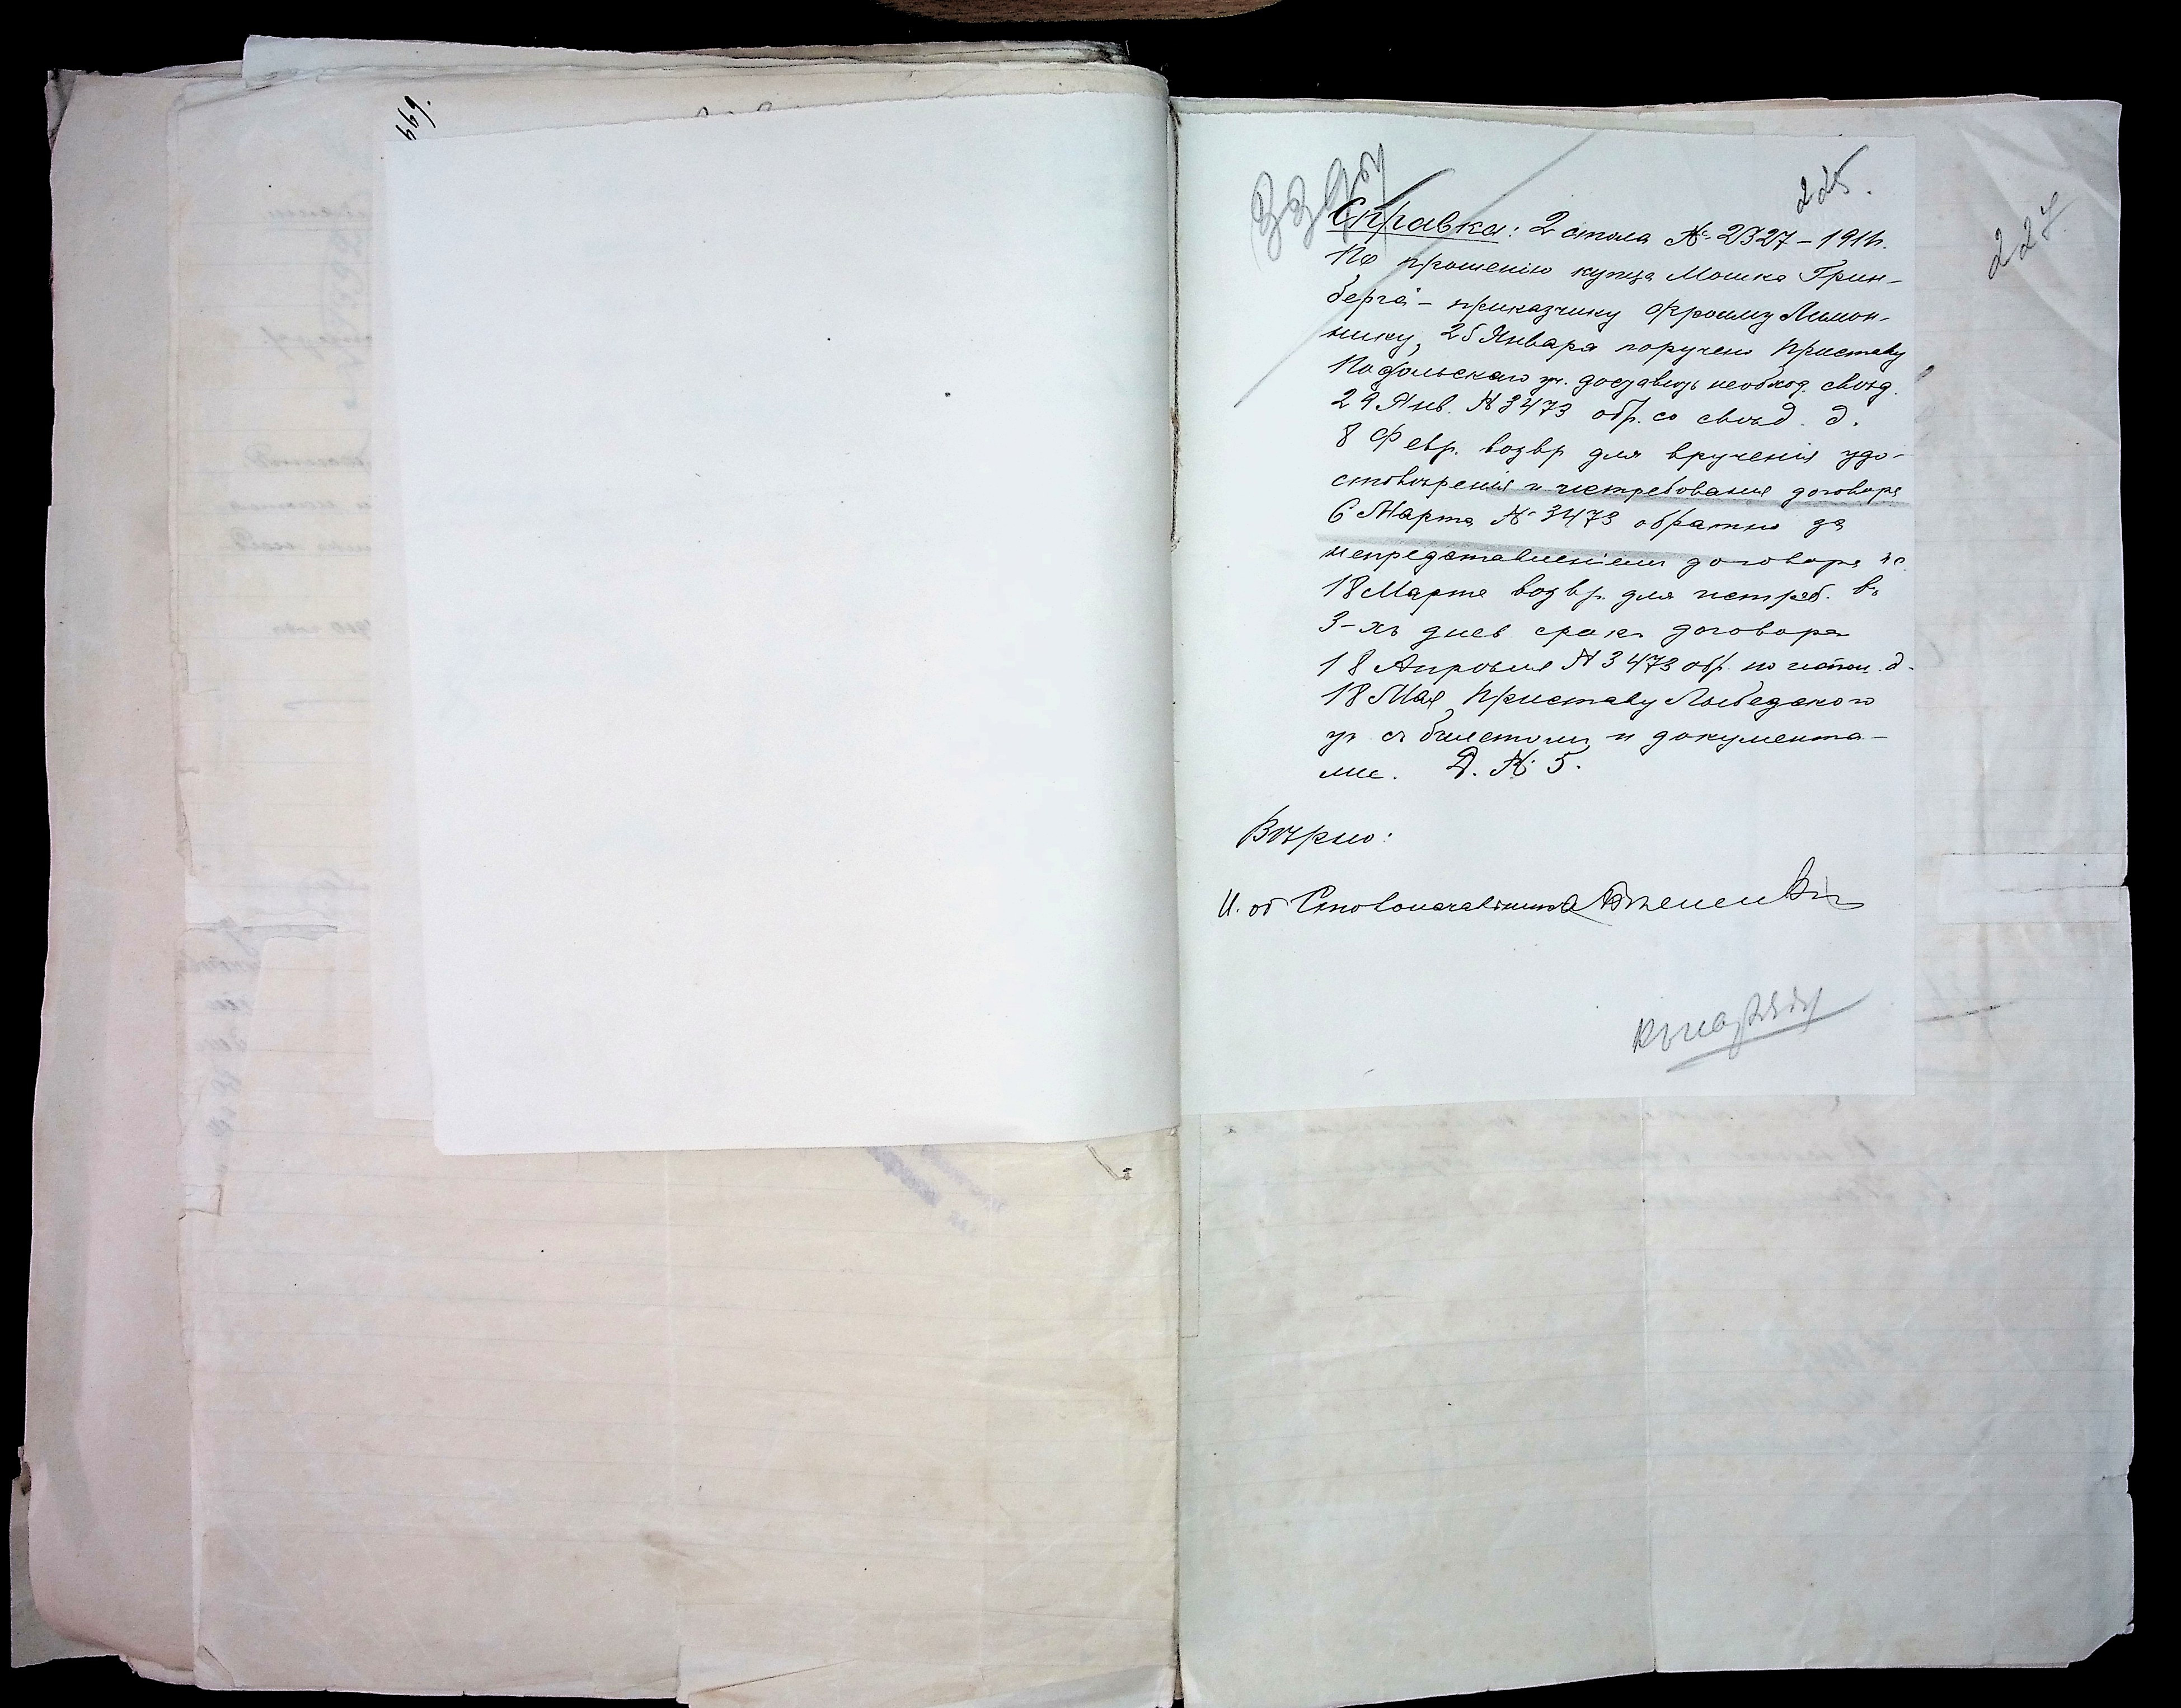 699.
225.
227
Справка: 2 стола № 2327 – 1911 г.
По прошенію купца Мошка Грин-
берга – приказчику Фроиму Лимон-
нику, 25 Января поручено Приставу
Подольскаго уч. доставить необход. свѣд.
29 Янв. № 3473 обр. со свѣд. д.
8 Февр. возвр для врученія удо-
стовѣренія и истребованія договора
6 Марта № 3473 обратно за
непредставленіем договора
18 Марта возвр. для истреб. въ
3-хъ днев срокъ договора
18 Апрѣля № 3473 обр. по исполн. д.
18 Мая Приставу Лыбедского
уч съ билетом и документа-
ми. Д. № 5.
Вѣрно:
И. об Столоначальника